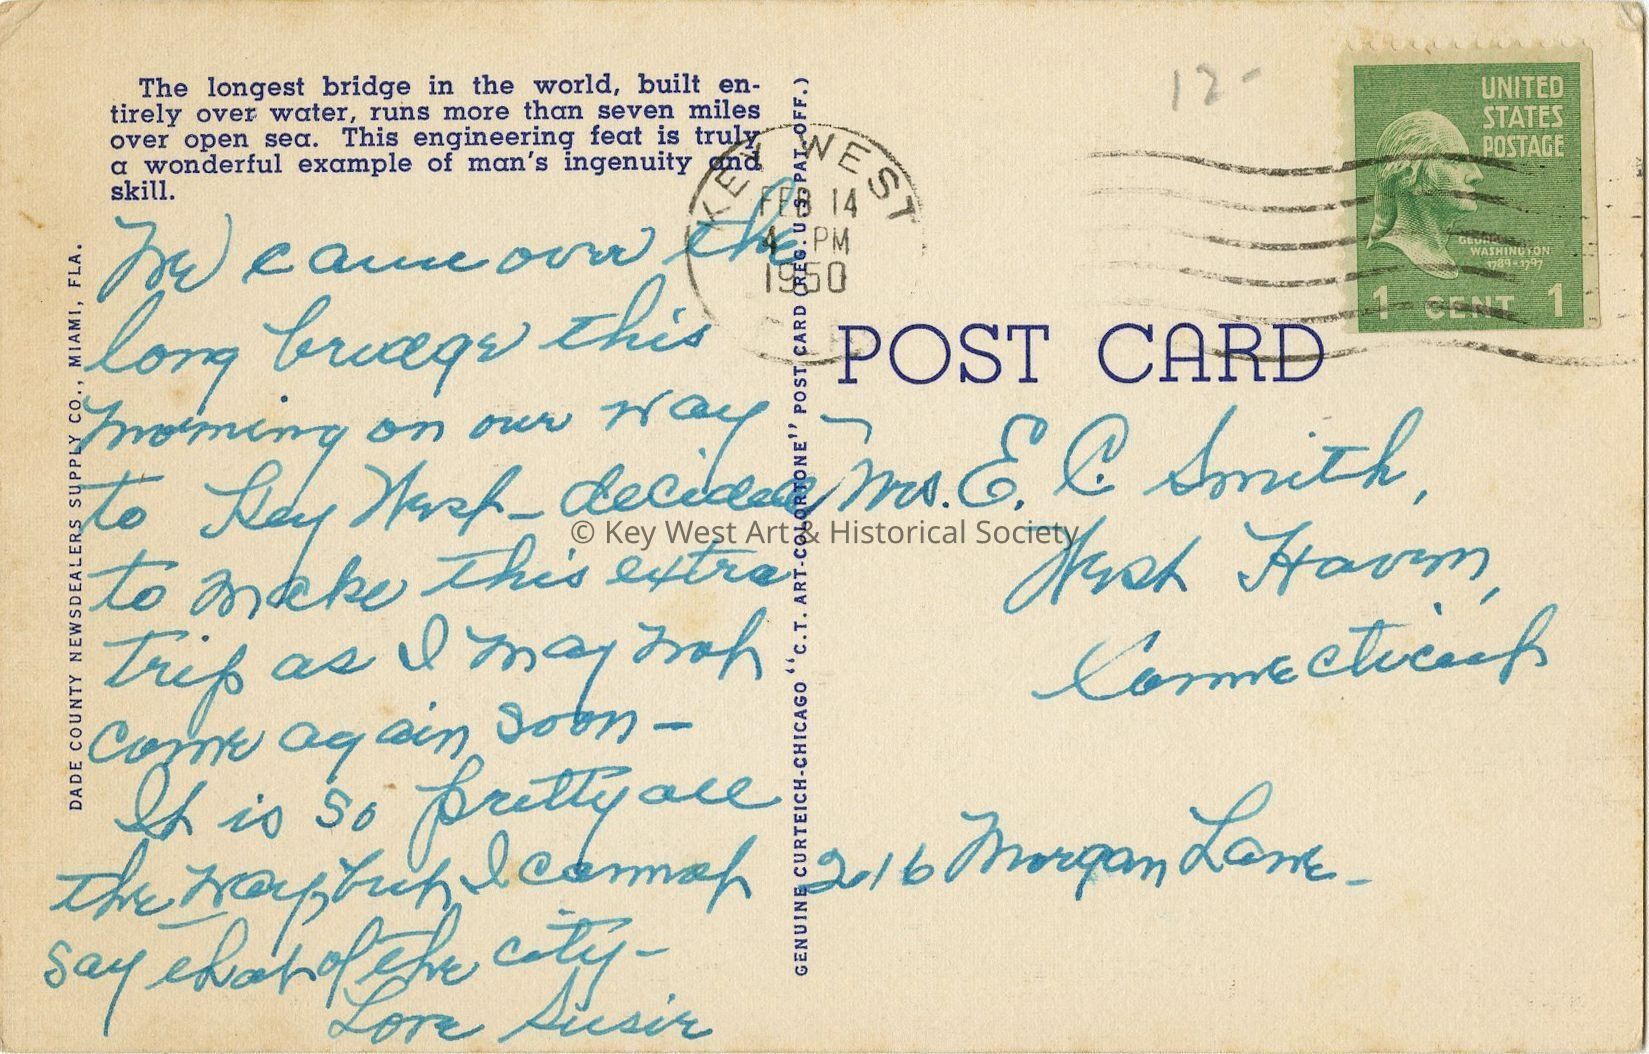 The longest bridge in the world, built en-
tirely over water, runs more than seven miles
over open sea. This engineering feat is truly
a wonderful example of man's ingenuity and
skill.
We came over the
long bridge this
morning on our way
to Key West - decided
to make this extra
trip as I may not
come again soon -
It is so pretty all
the way but I cannot
say that of the city -
Love Susie
DADE COUNTY NEWSDEALERS SUPPLY CO., MIAMI, FLA.
GENUINE CURTEICH-CHICAGO "C.T. ART-COLORTONE" POST CARD (REG. U.S. PAT. OFF.)
KEY WEST
FEB 14
4 PM
1950
12-
UNITED
STATES
POSTAGE
GEORGE
WASHINGTON
1789-1797
1 CENT 1
POST CARD
Mrs. E. C. Smith,
West Haven,
Connecticut
216 Morgan Lane -
© Key West Art & Historical Society